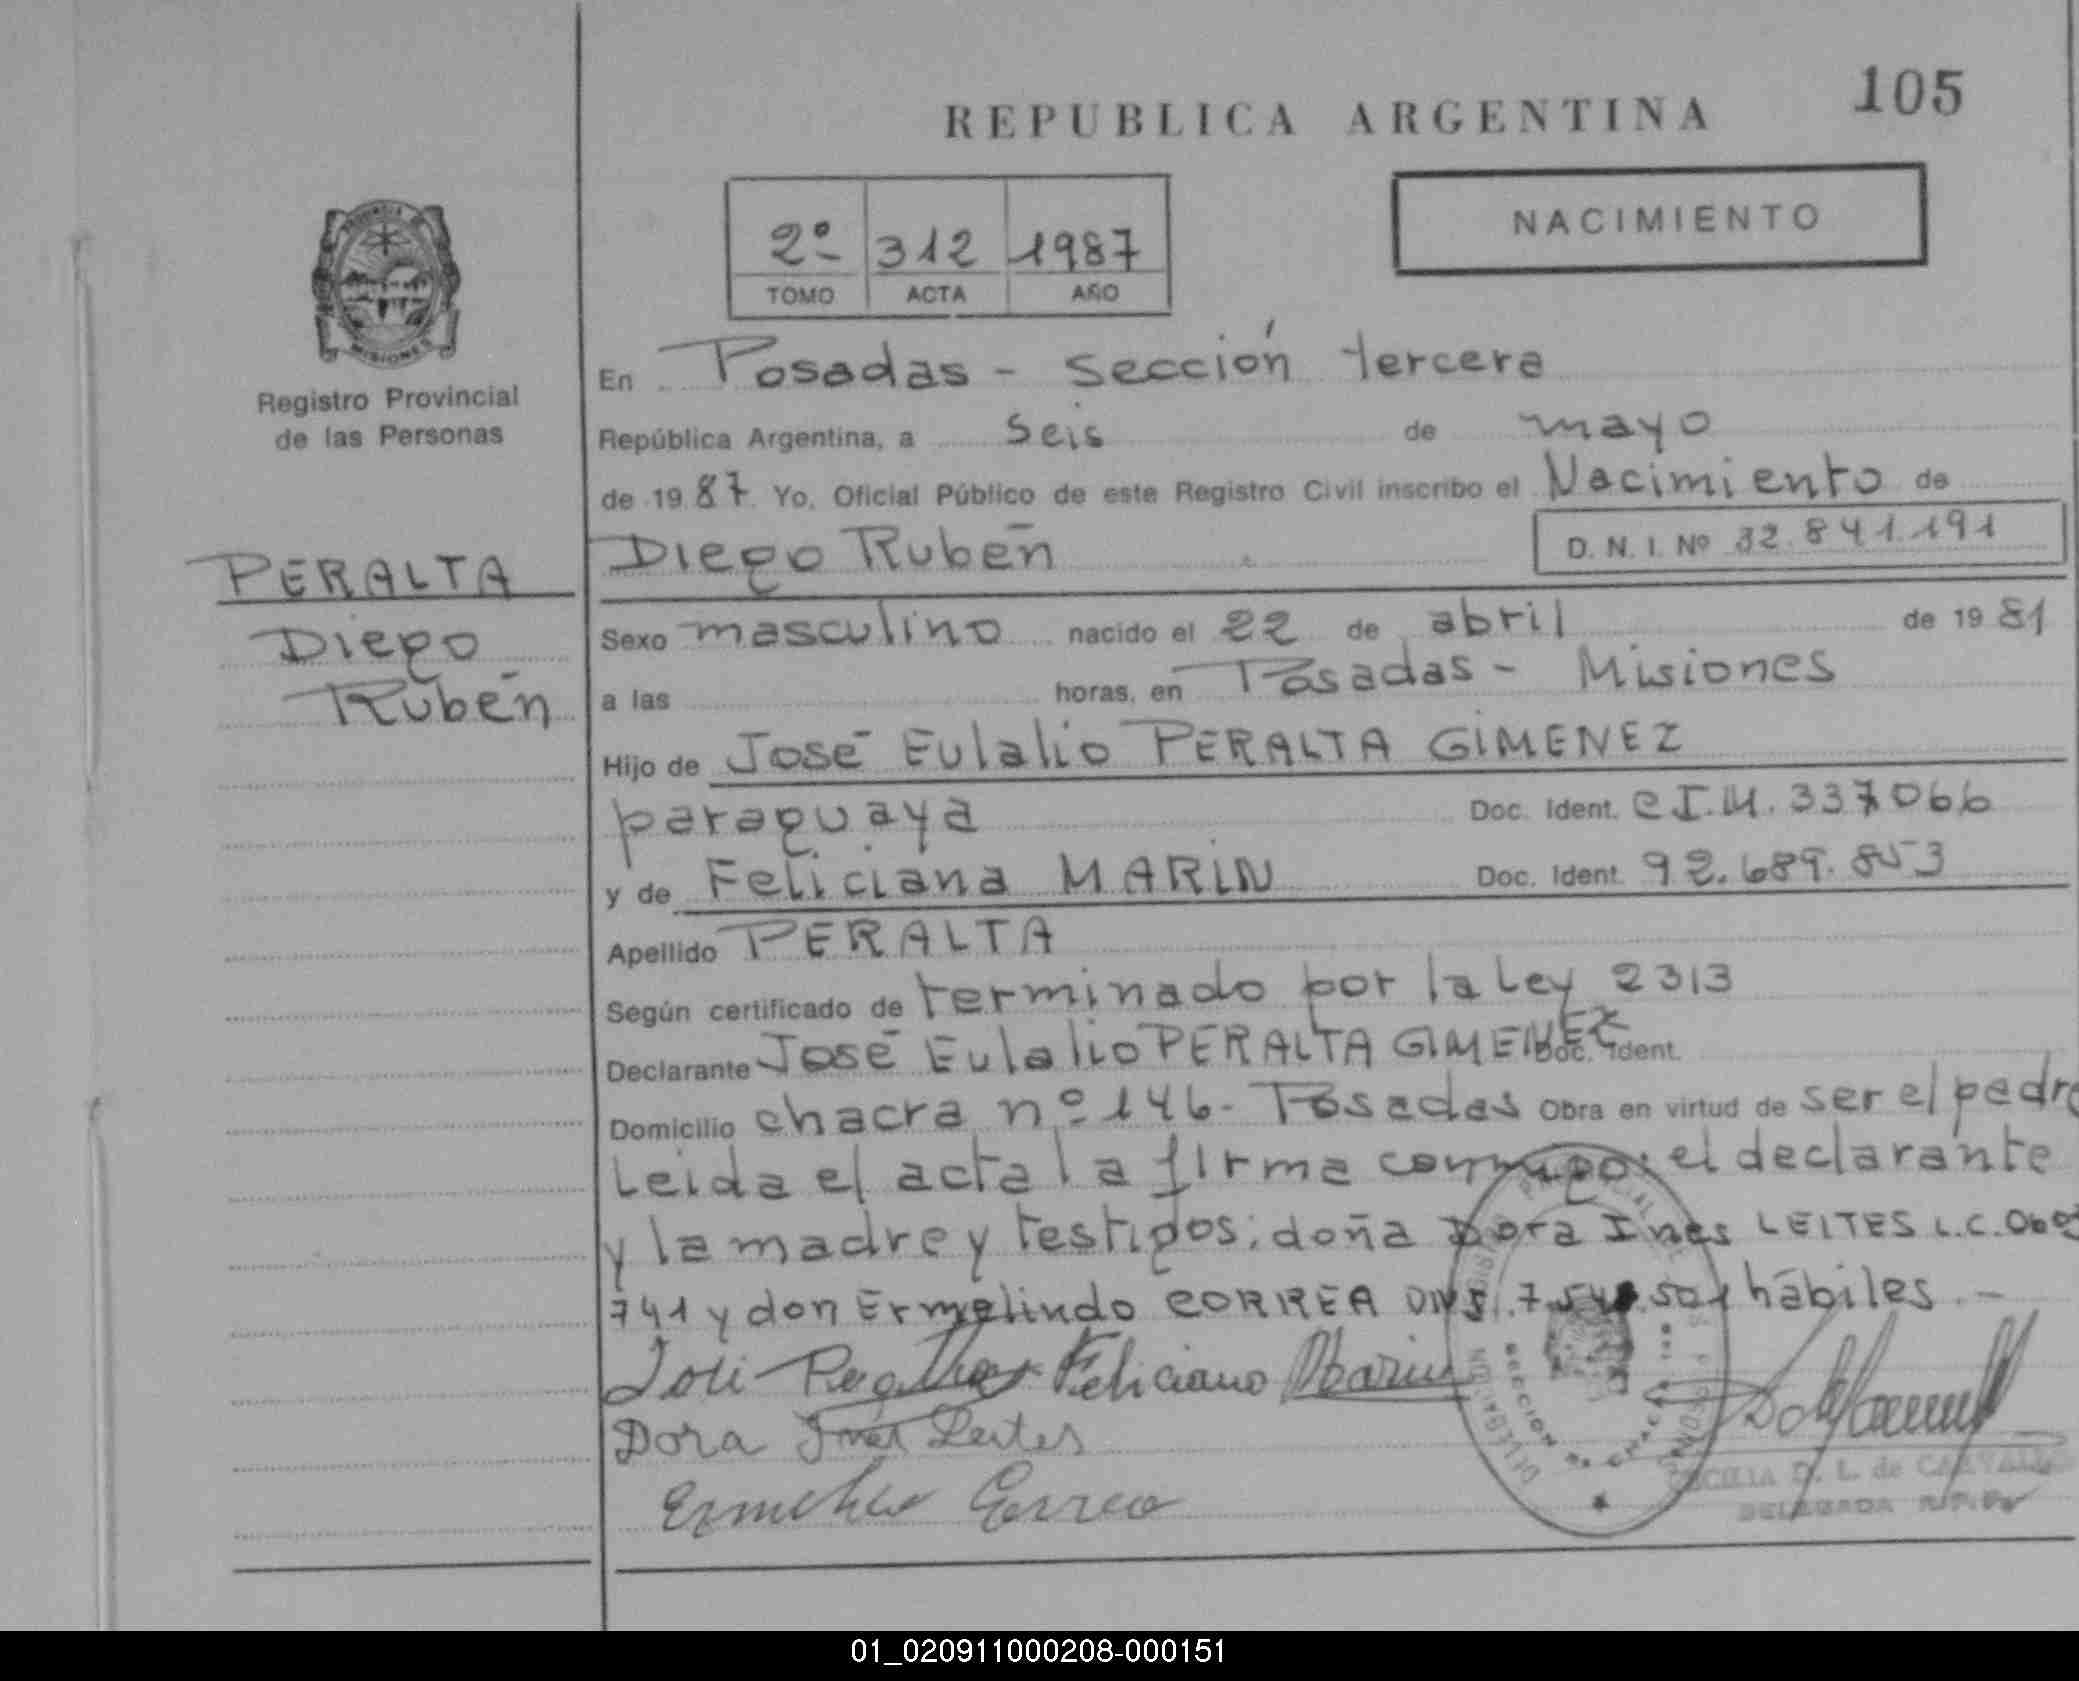 105
REPUBLICA ARGENTINA
NACIMIENTO
2º 312 1987
TOMO ACTA AÑO
MISIONES
Registro Provincial
de las Personas
En Posadas - sección tercera
República Argentina, a seis de mayo
de 1987 Yo, Oficial Público de este Registro Civil inscribo el Nacimiento de
Diego Rubén D. N. I. Nº 32.841.191
PERALTA
Diego
Rubén
Sexo masculino nacido el 22 de abril de 1981
a las horas, en Posadas - Misiones
Hijo de José Eulalio PERALTA GIMENEZ
paraguaya Doc. Ident. C.I.M. 337066
y de Feliciana MARIN Doc. Ident. 92.689.853
Apellido PERALTA
Según certificado de terminado por la Ley 2313
Declarante José Eulalio PERALTA GIMENEZ Doc. Ident.
Domicilio chacra nº 146- Posadas Obra en virtud de ser el padre
Leida el acta la firma conmigo: el declarante
y la madre y testigos: doña Dora Ines LEITES L.C.
741 y don Ermelindo CORREA DNI hábiles.-
Feliciano Marin
Dora Ines Leites
Correa
SECCION
CECILIA D. L. de
DELEGADA
01_020911000208-000151